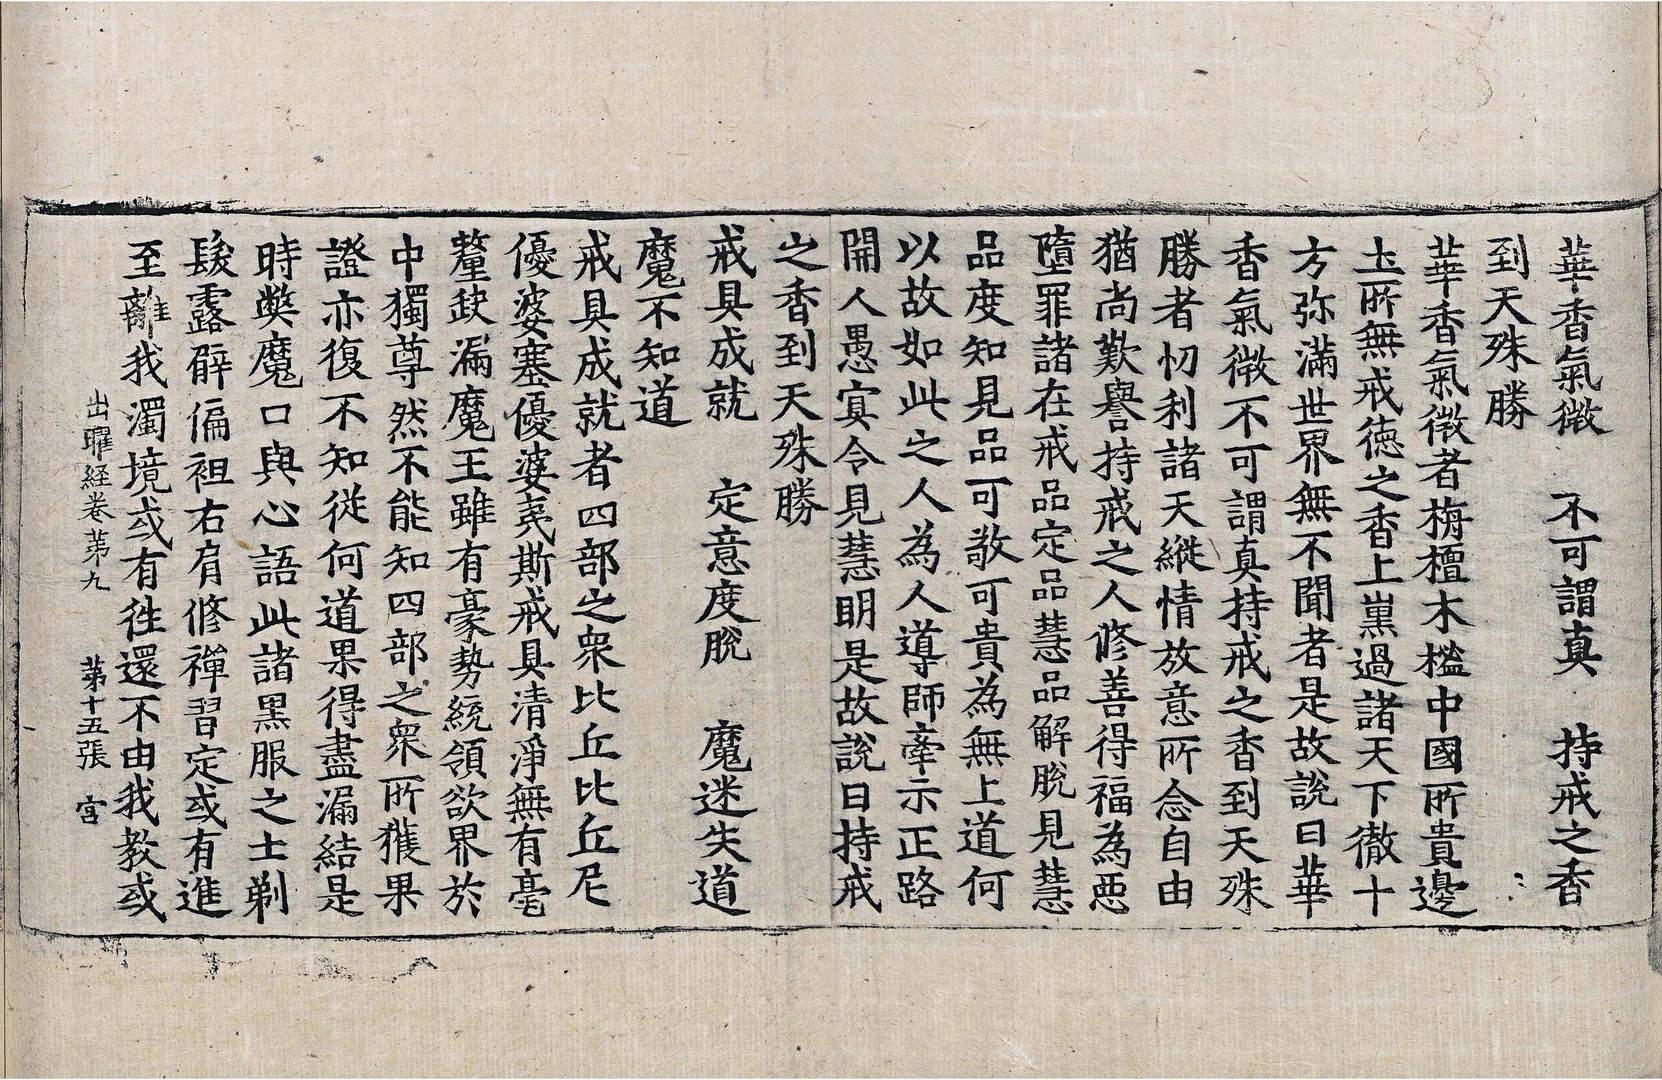 華香氣微　不可謂真　持戒之香
到天殊勝
華香氣微者栴檀木櫁中國所貴邊
土所無戒德之香上熏過諸天下徹十
方弥滿世界無不聞者是故說曰華
香氣微不可謂真持戒之香到天殊
勝者忉利諸天縱情放意所念自由
猶尚歎譽持戒之人修善得福為惡
墮罪諸在戒品定品慧品解脫見慧
品度知見品可敬可貴為無上道何
以故如此之人為人導師牽示正路
開人愚冥令見慧明是故說曰持戒
之香到天殊勝
戒具成就　定意度脫　魔迷失道
魔不知道
戒具成就者四部之眾比丘比丘尼
優婆塞優婆夷斯戒具清淨無有毫
釐缺漏魔王雖有豪勢統領欲界於
中獨尊然不能知四部之眾所獲果
證亦復不知從何道果得盡漏結是
時弊魔口與心語此諸黑服之士剃
髮露臂偏袒右肩修禪習定或有進
至離我濁境或有往還不由我教或
出曜經卷第九　第十五張　宮